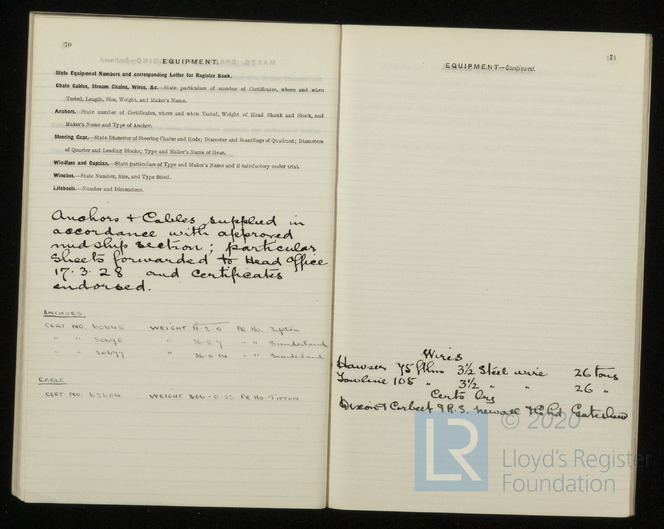 70
EQUIPMENT.
State Equipment Numbers and corresponding Letter for Register Book.
Chain Cables, Stream Chains, Wires, &c.—State particulars of number of Certificates, where and when
Tested, Length, Size, Weight, and Maker's Name.
Anchors.—State number of Certificates, where and when Tested, Weight of Head Shank and Stock, and
Maker's Name and Type of Anchor.
Steering Gear.—State Diameter of Steering Chains and Rods; Diameter and Scantlings of Quadrant; Diameters
of Quarter and Leading Blocks; Type and Maker's Name of Gear.
Windlass and Capstan.—State particulars of Type and Maker's Name and if satisfactory under trial.
Winches.—State Number, Size, and Type fitted.
Lifeboats.—Number and Dimensions.
Anchors & Cables supplied in
accordance with approved
midship section; particular
sheets forwarded to Head Office
17.3.28 and Certificates
endorsed.
ANCHORS
CERT NO. WEIGHT PR HO. Tipton
" " " " " Sunderland
" " " " " Sunderland
CABLE
CERT NO. WEIGHT PR HO. TIPTON
71
EQUIPMENT—Continued.
Wires
Hawser 75 fthms 3½ Steel wire 26 tons
Towline 105 " 3½ " " 26 "
Certs by
Dixon & Corbett & R.S. Newall & Co Ltd Gateshead
© 2020
LR
Lloyd's Register
Foundation